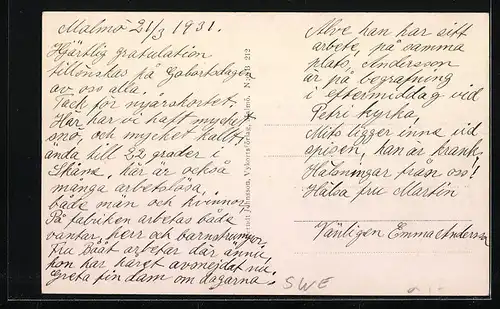 Malmö 21/3 1931.
Hjärtlig gratulation
tillönskas på Gabortsdagen
av oss alla.
Tack för nyårskortet.
Här har vi haft mycket
snö, och mycket kallt,
ända till 22 grader i
Skåne, här är också
många arbetslösa,
både män och kvinnor
På fabriken arbetas både
vantar, herr och barnstrumpor.
Fru Bååt arbetar där ännu,
hon har håret avmejdat nu.
Greta fin dam om dagarna.
Alve han har sitt
arbete, på samma
plats, Andersson
är på begrafning
i eftermiddag vid
Petri kyrka,
Mits ligger inne vid
spisen, han är krank.
Hälsningar från oss!
Hälsa fru Martén
Vänligen Emma Andersson
Vykortsförlag, Malmö. N:o B 212
SWE